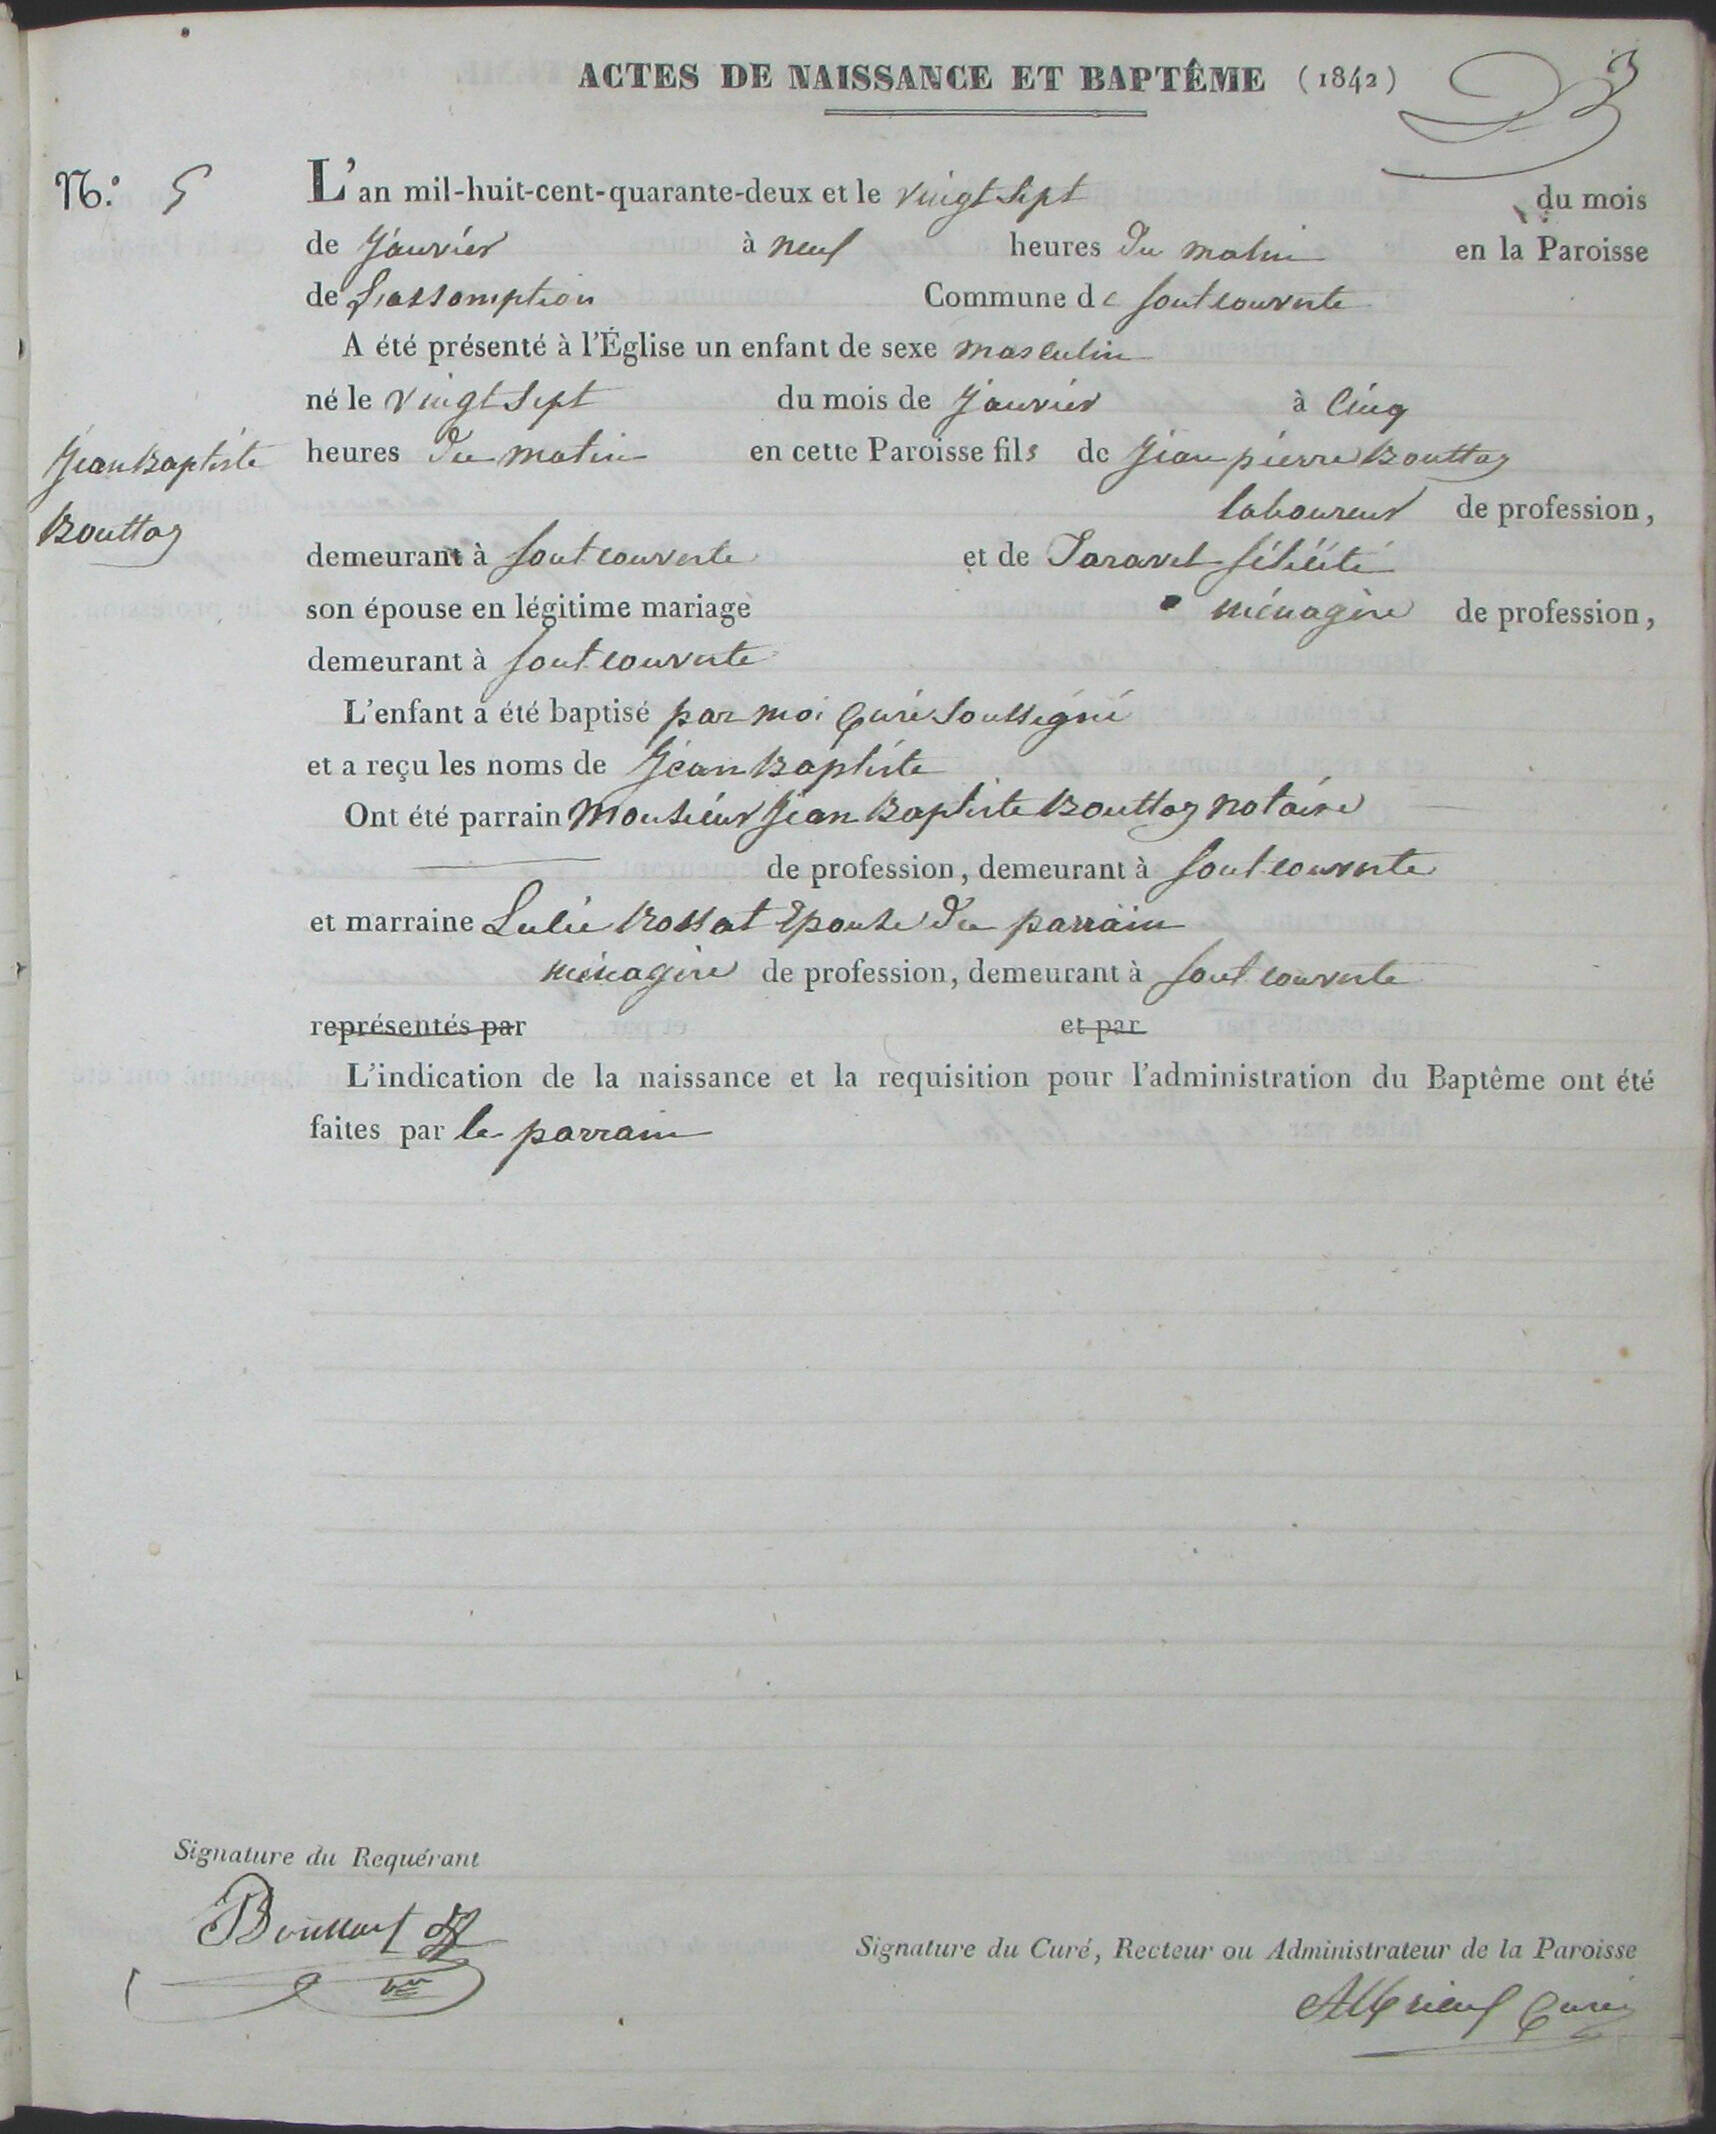 ACTES DE NAISSANCE ET BAPTÊME (1842) 3
N.º 5 L'an mil-huit-cent-quarante-deux et le vingt sept du mois
de Janvier à neuf heures du matin en la Paroisse
de L'assomption Commune de fontcouverte
A été présenté à l'Église un enfant de sexe masculin
né le vingt sept du mois de Janvier à Cinq
heures du matin en cette Paroisse fils de Jean pierre Bouttaz
Jean Baptiste
Bouttaz
laboureur de profession,
demeurant à fontcouverte et de félicité
son épouse en légitime mariage ménagère de profession,
demeurant à fontcouverte
L'enfant a été baptisé par moi Curé soussigné
et a reçu les noms de Jean Baptiste
Ont été parrain Monsieur Jean Baptiste Bouttaz notaire
de profession, demeurant à fontcouverte
et marraine Rossat Epouse du parrain
ménagère de profession, demeurant à fontcouverte
représentés par et par
L'indication de la naissance et la requisition pour l'administration du Baptême ont été
faites par le parrain
Signature du Requérant
Signature du Curé, Recteur ou Administrateur de la Paroisse
Curé